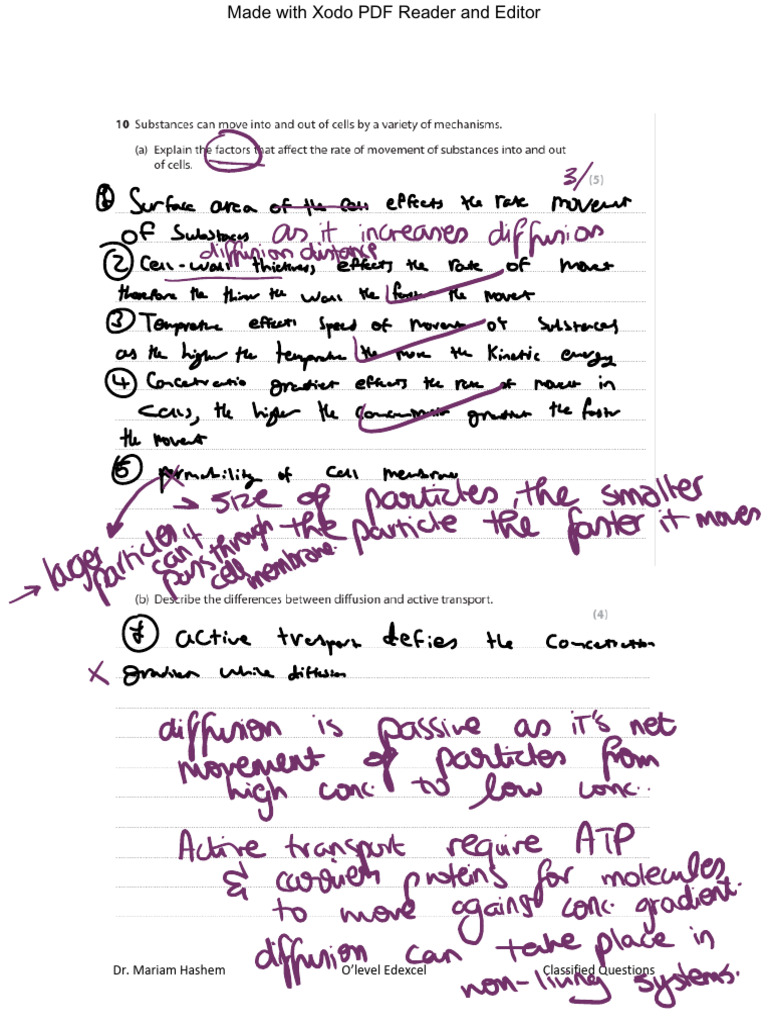 Made with Xodo PDF Reader and Editor
10 Substances can move into and out of cells by a variety of mechanisms.
(a) Explain the factors that affect the rate of movement of substances into and out
of cells.
3/ (5)
① Surface area of the cell effects the rate movment
of Substances as it increases diffusion
diffusion distance
② Cell-wall thickness, effects the rate of movet
therefore the thiner the wall the faster the movet
③ Temperature effects speed of movemet of substances
as the higher the temperature the more the Kinetic energy
④ Concetratio gradient effects the rate of movet in
cells, the higher the concentration gradient the faster
the movemet
⑤ permability of cell membrane
→ size of particles, the smaller
the particle the faster it moves
→ larger particles can't
pass through
cell membrane.
(b) Describe the differences between diffusion and active transport.
(4)
① active transport defies the Concetration
X gradient while diffusion
diffusion is passive as it's net
movement of particles from
high conc. to low conc.
Active transport require ATP
& carrier proteins for molecules
to move against conc. gradient.
diffusion can take place in
non-living systems.
Dr. Mariam Hashem O'level Edexcel Classified Questions